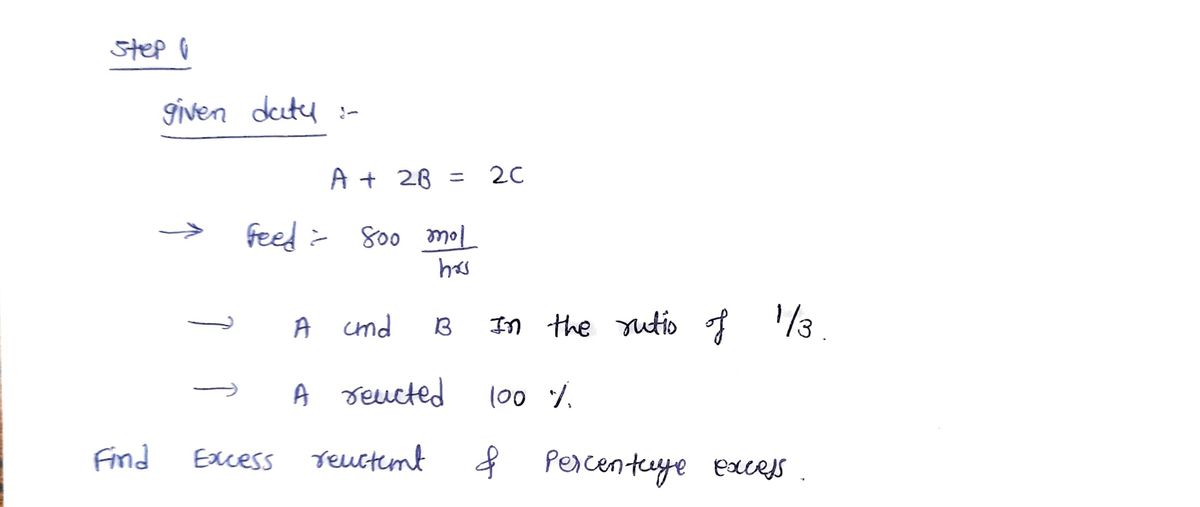 Step 1
given data :-
A + 2B = 2C
→ Feed :- 800 mol/hrs
→ A and B In the ratio of 1/3.
→ A reacted 100 %.
Find Excess reactant & Percentage excess.